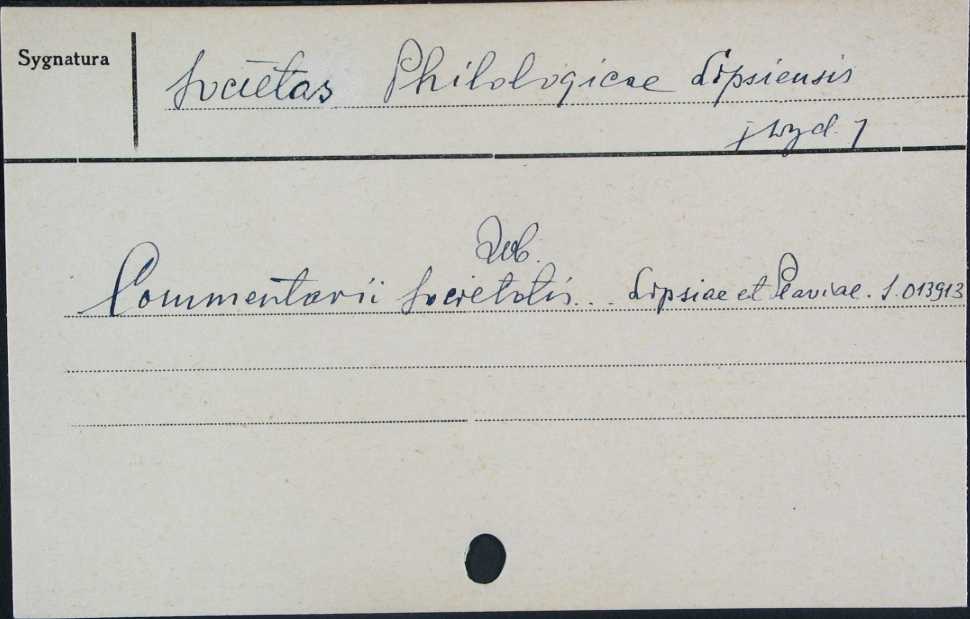 Sygnatura
Societas Philologicae Lipsiensis
[wyd.]
Zob.
Commentarii Societatis... Lipsiae et Graviae. S. 013913